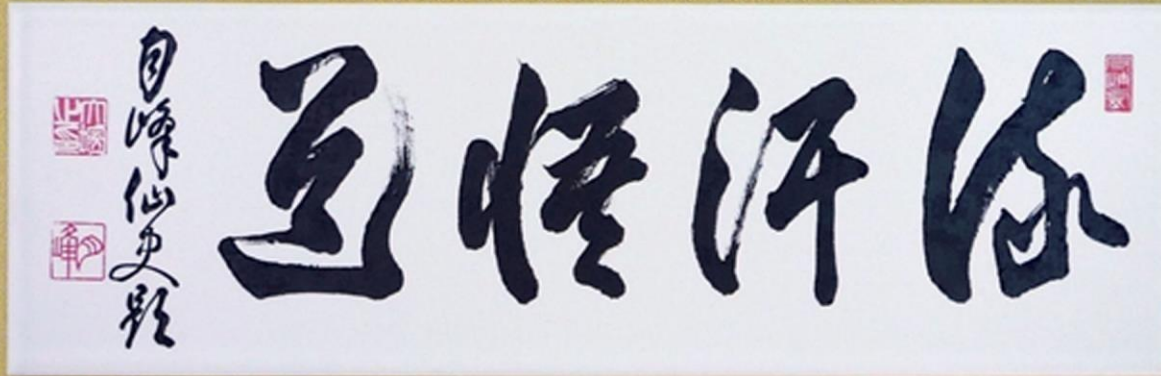 流汗悟道
月峰仙史題